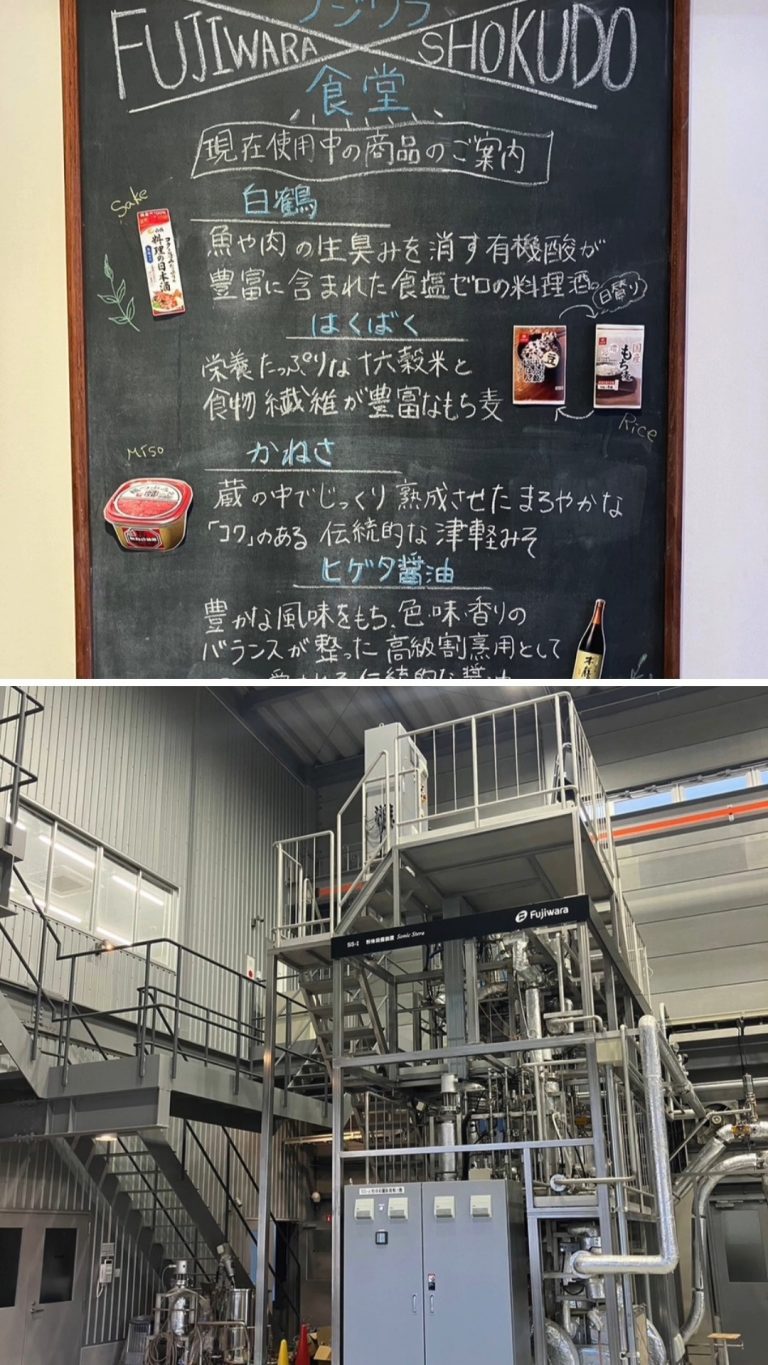 フジワラ
FUJIWARA SHOKUDO
食堂
現在使用中の商品のご案内
Sake
白鶴
料理の日本酒
魚や肉の生臭みを消す有機酸が
豊富に含まれた食塩ゼロの料理酒。
日替り
はくばく
栄養たっぷりな十六穀米と
食物繊維が豊富なもち麦
国産
もち麦
Rice
Miso
かねさ
蔵の中でじっくり熟成させたまろやかな
「コク」のある伝統的な津軽みそ
ヒゲタ醤油
豊かな風味をもち、色・味・香りの
バランスが整った高級割烹用として
伝統的な醤油
Fujiwara
SS-1 粉体殺菌装置 Sonic Stera